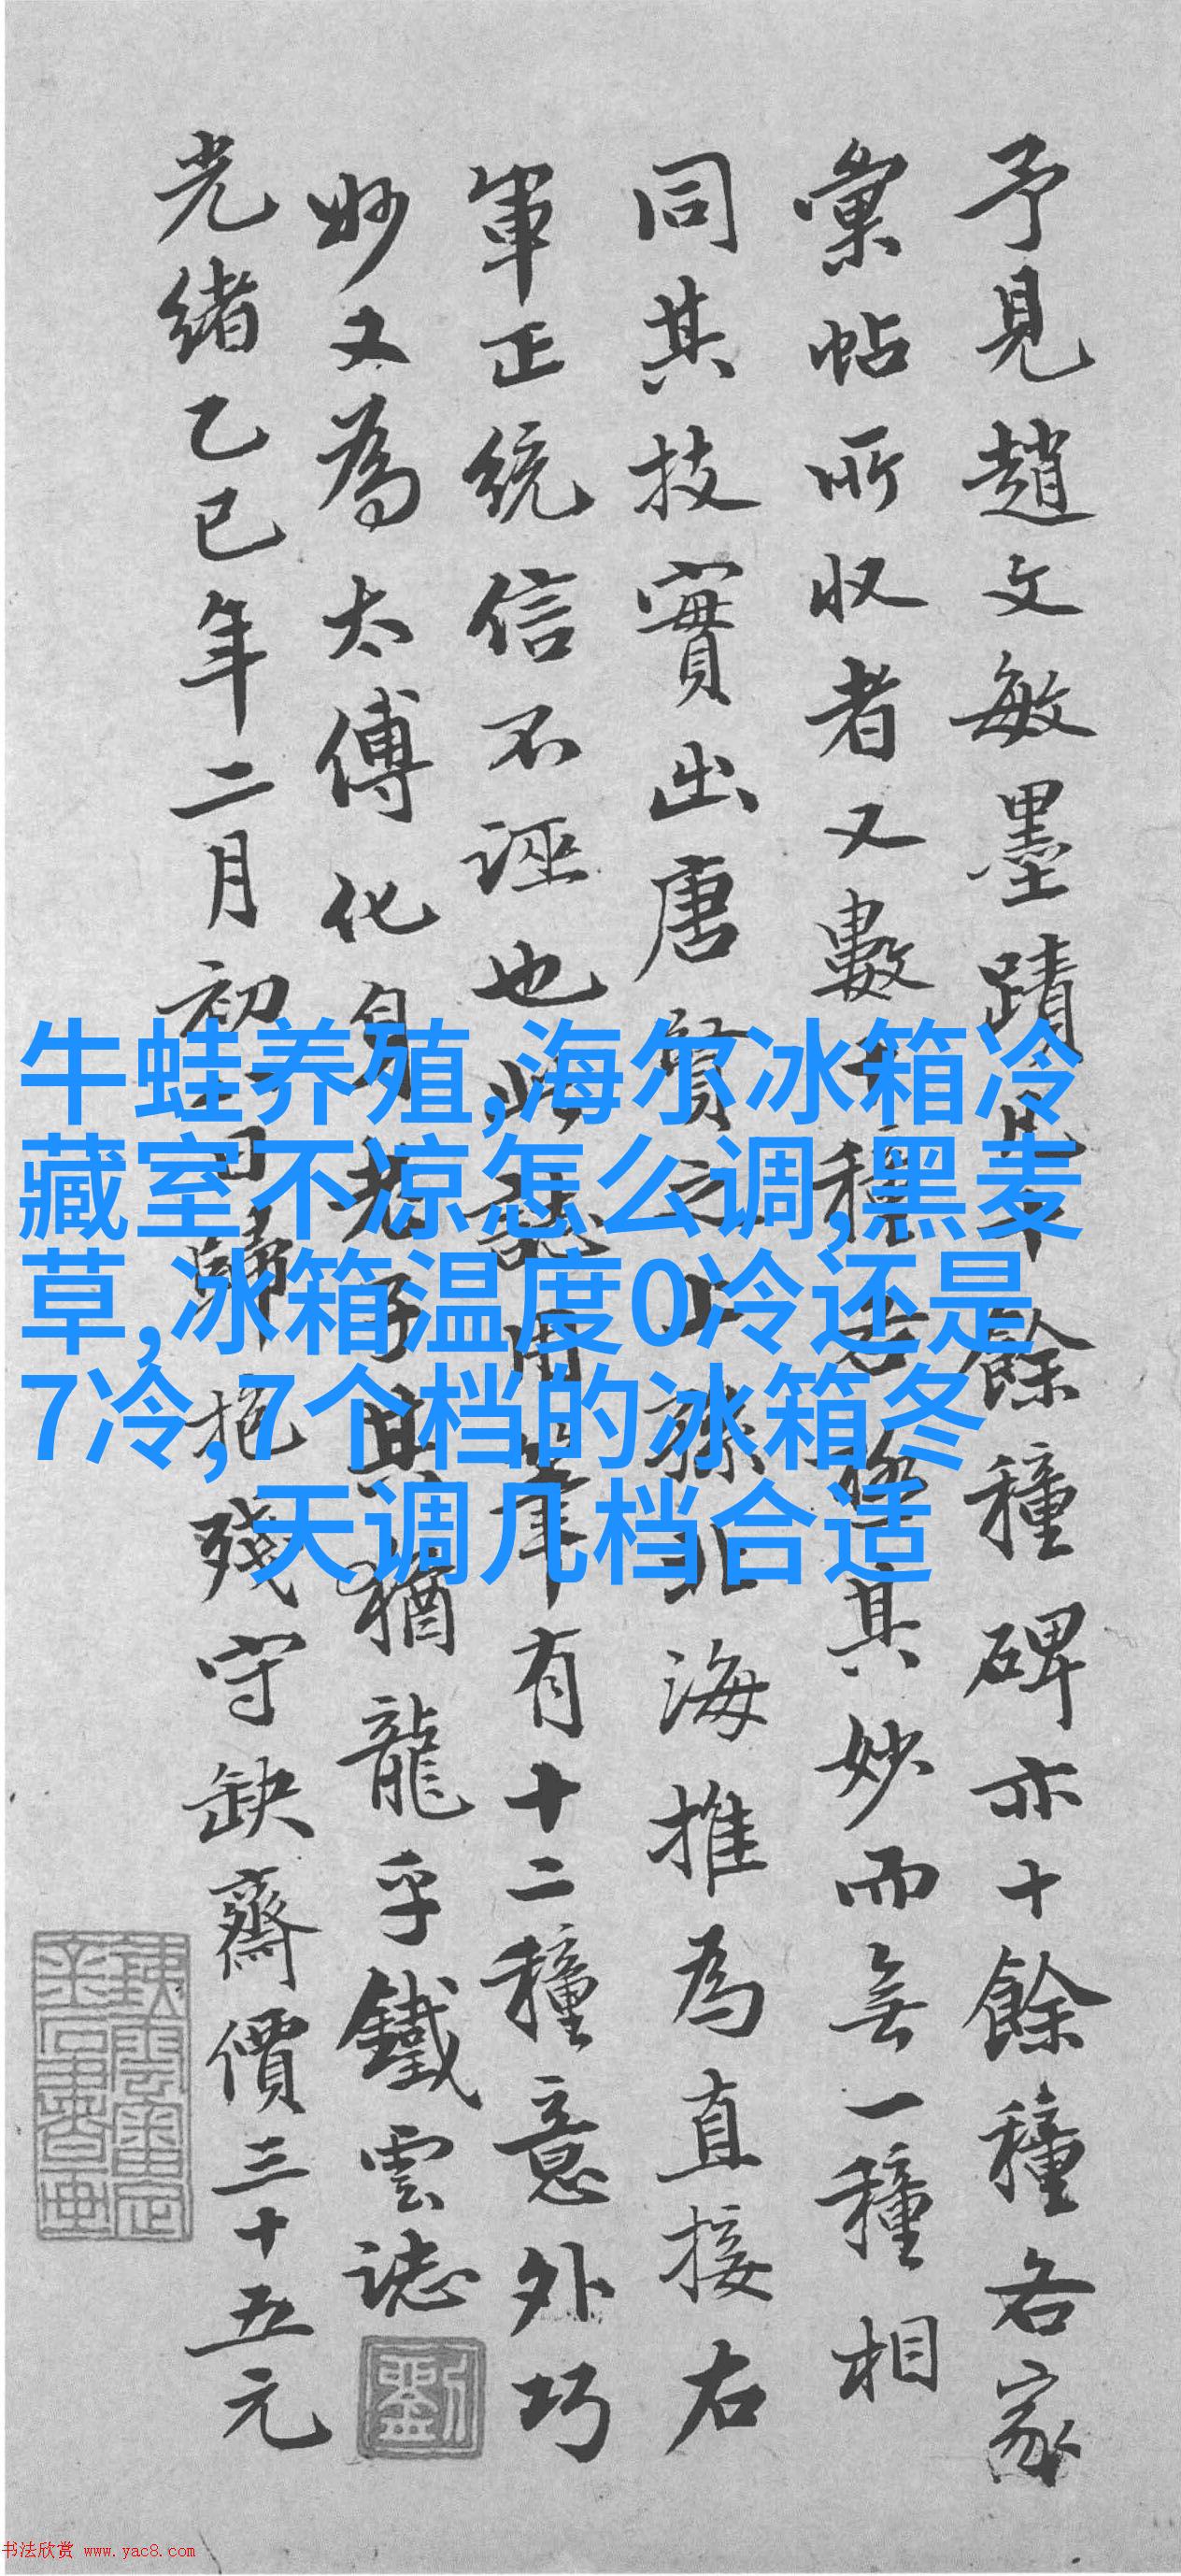 予見趙文敏墨蹟餘種碑亦十餘種各家
彙帖所收者又數種其妙而無一種相
同其技實出唐賢之上孫北海推為直接右
軍正統信不誣也此誌用筆有十二種意外巧
妙又為太傅化身老子其猶龍乎鐵雲誌
光緒乙巳年二月初日歸抱殘守缺齋價三十五元
牛蛙养殖,海尔冰箱冷
藏室不凉怎么调,黑麦
草,冰箱温度0冷还是
7冷,7个档的冰箱冬
天调几档合适
劉
书法欣赏 www.yac8.com